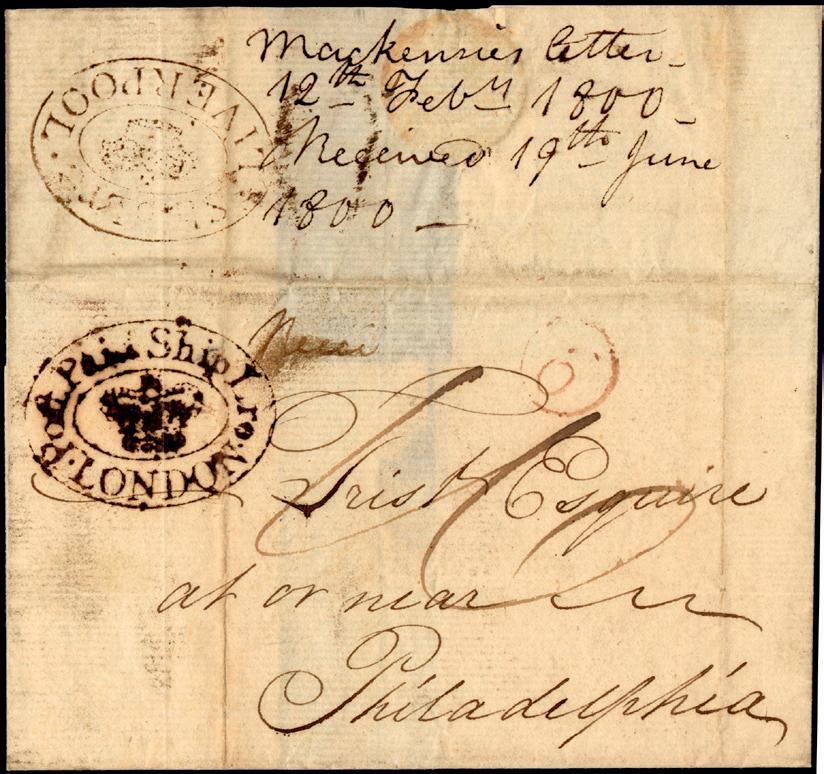 Mackenzies letter
12th Feby 1800
Received 19th June
1800
LIVERPOOL
Post Paid Ship Lre.
LONDON
Trist Esquire
at or near
Philadelphia